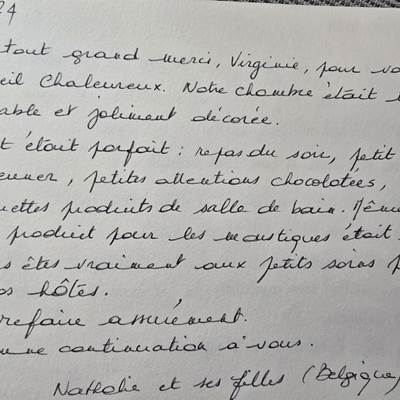 24
tout grand merci, Virginie, pour vo
eil chaleureux. Notre chambre était
able et joliment décorée.
t était parfait : repas du soir, petit
euner, petites attentions chocolatées,
uettes produits de salle de bain. Même
produit pour les moustiques était
s êtes vraiment aux petits soins p
os hôtes.
refaire assurément.
une continuation à vous.
Nathalie et ses filles (Belgique)